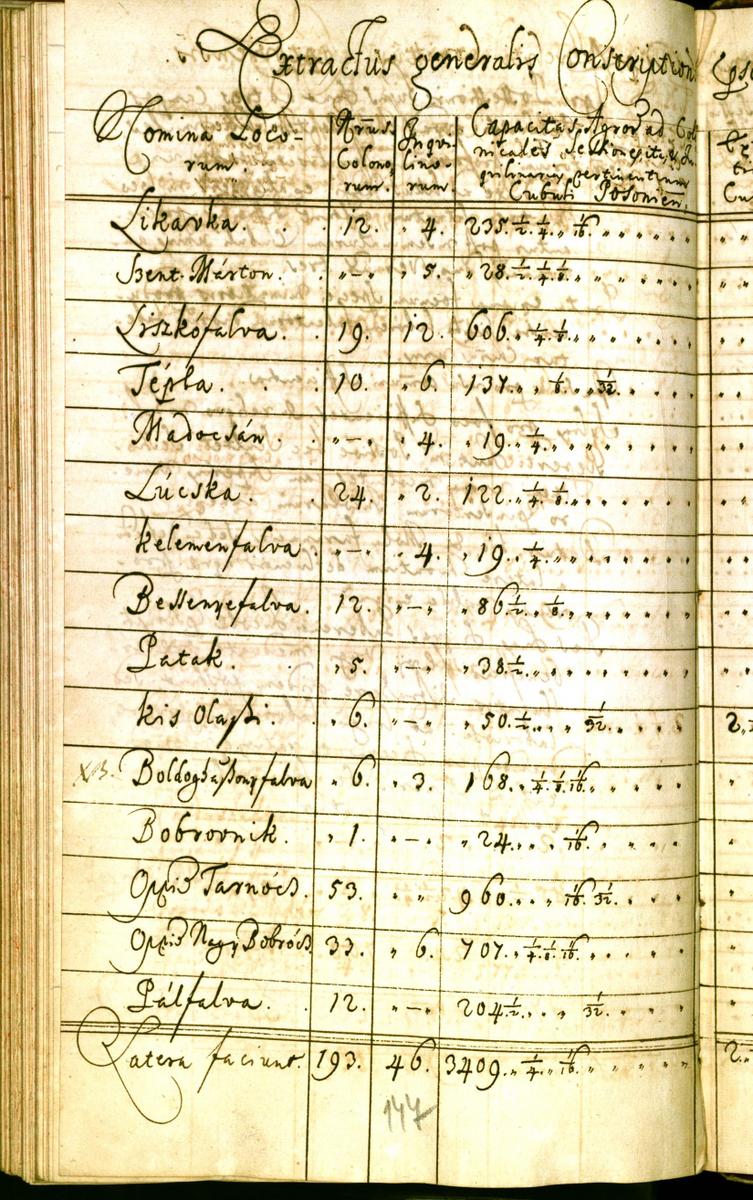 Extractus generalis Conscription
Nomina Loco-
rum.
Nrus
Colono-
rum.
Inqvi-
lino-
rum.
Capacitas Agror. ad Col
nicales Sessiones, item In
qvilinaria pertinentium
Cubuli Posonien.
Likavka. 12. 4. 235. 1/2 1/4 1/16
Szent Márton. – 5. 28. 1/2 1/4 1/8
Liszkófalva. 19. 12. 606. 1/4 1/8
Tépla. 10. 6. 137. 1/8 1/32
Madocsán. – 4. 19. 1/4
Lúcska. 24. 2. 122. 1/4 1/8
kelemenfalva – 4. 19. 1/4
Bessenyefalva. 12. – 86 1/2 1/8
Patak. 5. – 38. 1/2
kis Olaszi. 6. – 50. 1/2 1/32
XB. Boldoghászonyfalva 6. 3. 168. 1/4 1/8 1/16
Bobrovnik. 1. – 24. 1/16
Oppid Tarnócz. 53. 960. 1/16 1/32
Oppid Nagy Bobrócz 33. 6. 707. 1/4 1/8 1/16
Pálfalva. 12. – 204 1/2 1/32
Latera faciunt. 193. 46. 3409. 1/4 1/16
147